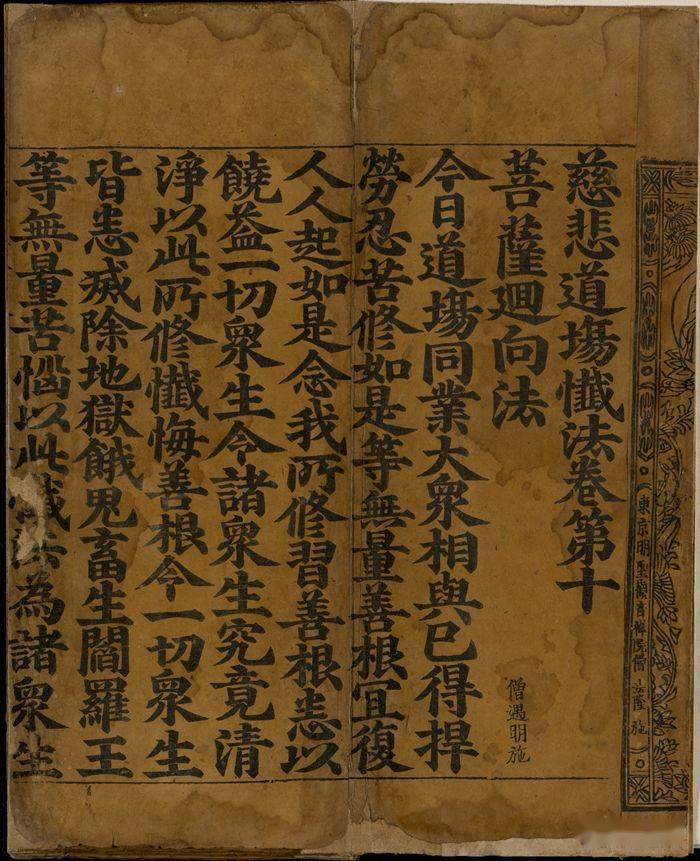 東京明聖觀音禪院僧 施
慈悲道塲懺法卷第十
菩薩迴向法
僧遇明施
今日道塲同業大衆相與已得捍
勞忍苦修如是等無量善根冝復
人人起如是念我所修習善根悉以
饒益一切衆生令諸衆生究竟清
淨以此所修懺悔善根令一切衆生
皆悉滅除地獄餓鬼畜生閻羅王
等無量苦惱以此懺法為諸衆生